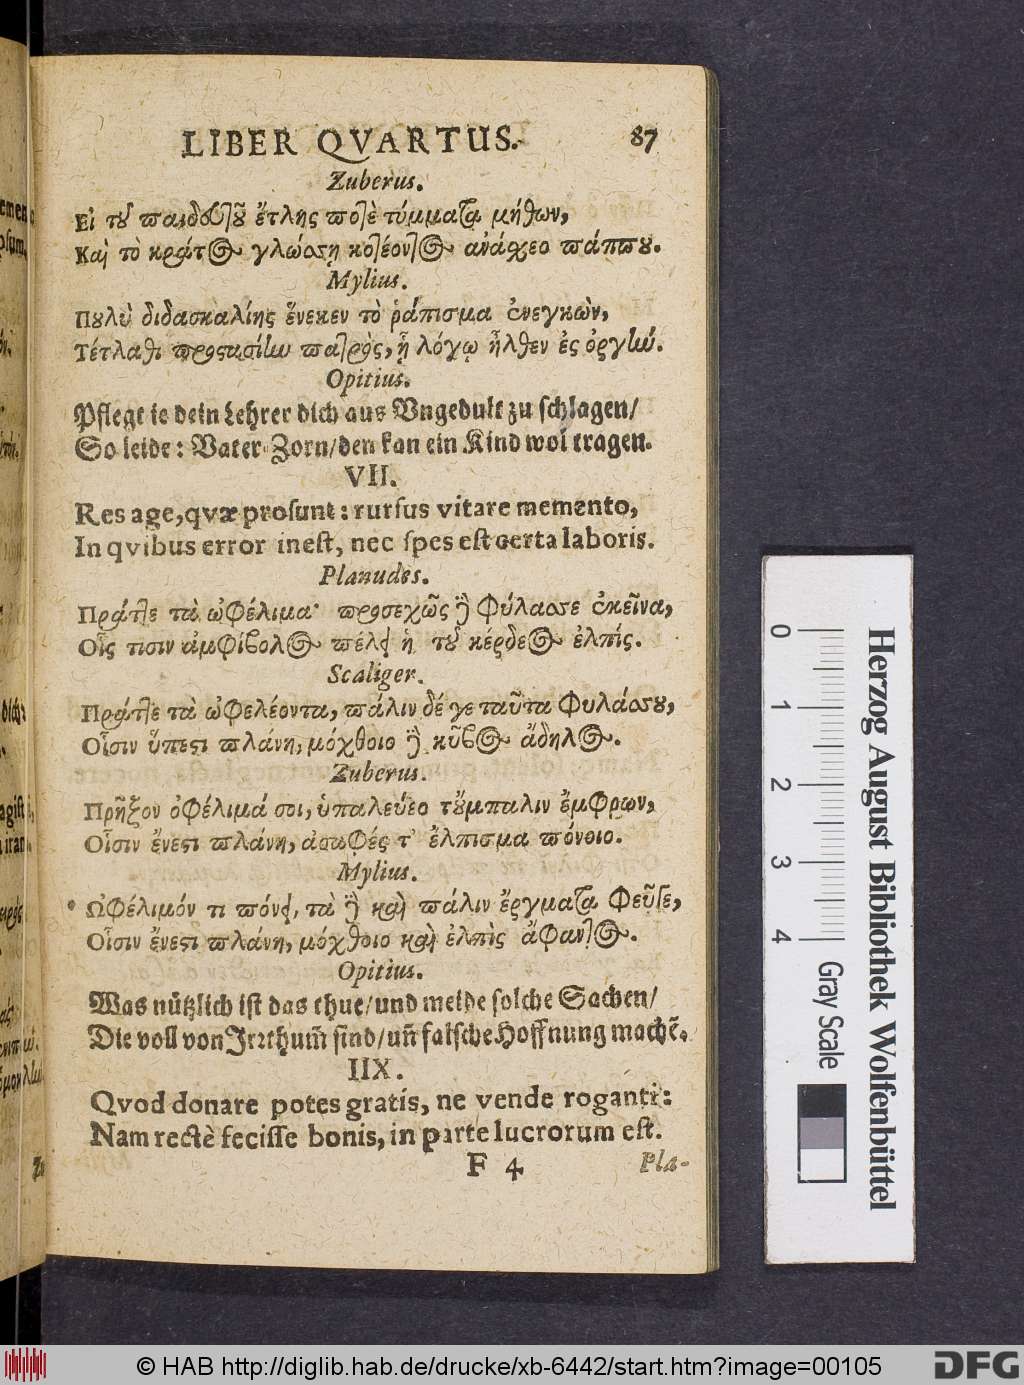 LIBER QVARTUS. 87
Zuberus.
Εἰ τοῦ παιδευτοῦ ἔτλης ποτὲ τύμματα μήθων,
Καὶ τὸ κράτος γλώσσῃ κοτέοντος ἀνάσχεο πάππου.
Mylius.
Πουλὺ διδασκαλίης ἕνεκεν τὸ ῥάπισμα ἐνεγκὼν,
Τέτλαθι πατρὸς, ᾗ λόγῳ ἦλθεν ἐς ὀργήν.
Opitius.
Pflegt ie dein Lehrer dich aus Vngedult zu schlagen/
So leide: Vater Zorn/den kan ein Kind wol tragen.
VII.
Res age, qvæ prosunt: rursus vitare memento,
In qvibus error inest, nec spes est certa laboris.
Planudes.
Πράττε τὰ ὠφέλιμα· προσεχῶς δὲ φύλασσε ἐκεῖνα,
Οἷς τισιν ἀμφίβολος πέλει ἡ τοῦ κέρδεος ἐλπίς.
Scaliger.
Πράττε τὰ ὠφελέοντα, πάλιν δέ γε ταῦτα φυλάσσου,
Οἷσιν ὕπεστι πλάνη, μόχθοιο δὲ κῦδος ἄδηλος.
Zuberus.
Πρῆξον ὀφέλιμά σοι, ὑπαλεύεο τοὔμπαλιν ἔμφρων,
Οἷσιν ἔνεστι πλάνη, ἀσαφές τ' ἔλπισμα πόνοιο.
Mylius.
Ὠφέλιμόν τι πόνει, τὰ δὲ καὶ πάλιν ἔργματα φεῦγε,
Οἷσιν ἔνεστι πλάνη, μόχθοιο καὶ ἐλπὶς ἄφαντος.
Opitius.
Was nützlich ist das thue/und meide solche Sachen/
Die voll von Irrthum̃ sind/un̄ falsche Hoffnung machē.
IIX.
Qvod donare potes gratis, ne vende roganti:
Nam rectè fecisse bonis, in parte lucrorum est.
F 4 Pla-
0 1 2 3 4 Gray Scale
Herzog August Bibliothek Wolfenbüttel
© HAB http://diglib.hab.de/drucke/xb-6442/start.htm?image=00105 DFG